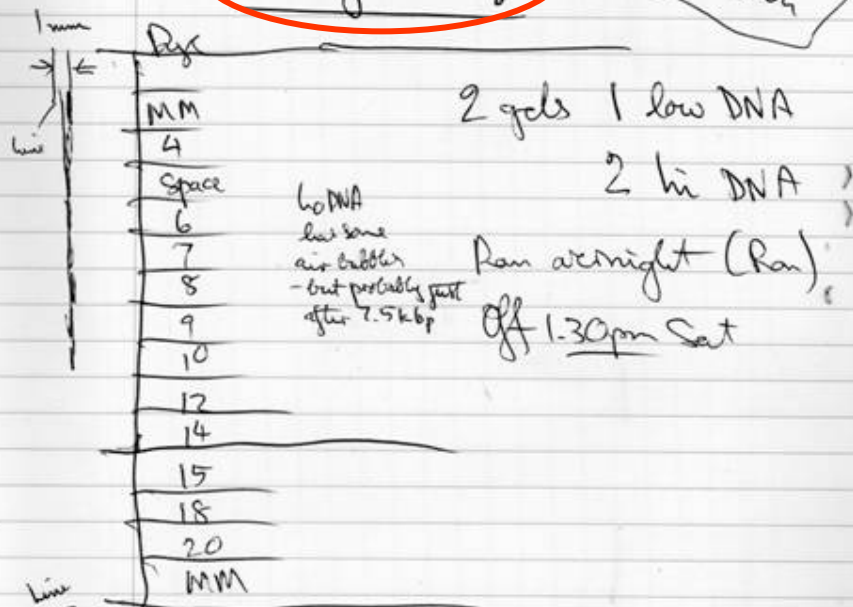 1 mm
Dye
MM
4
Space
6
7
8
9
10
12
14
15
18
20
MM
line
line
LoDNA
has some
air bubbles
- but probably just
after 7.5kbp
2 gels 1 low DNA
2 hi DNA
Ran overnight (Ran)
Off 1.30pm Sat